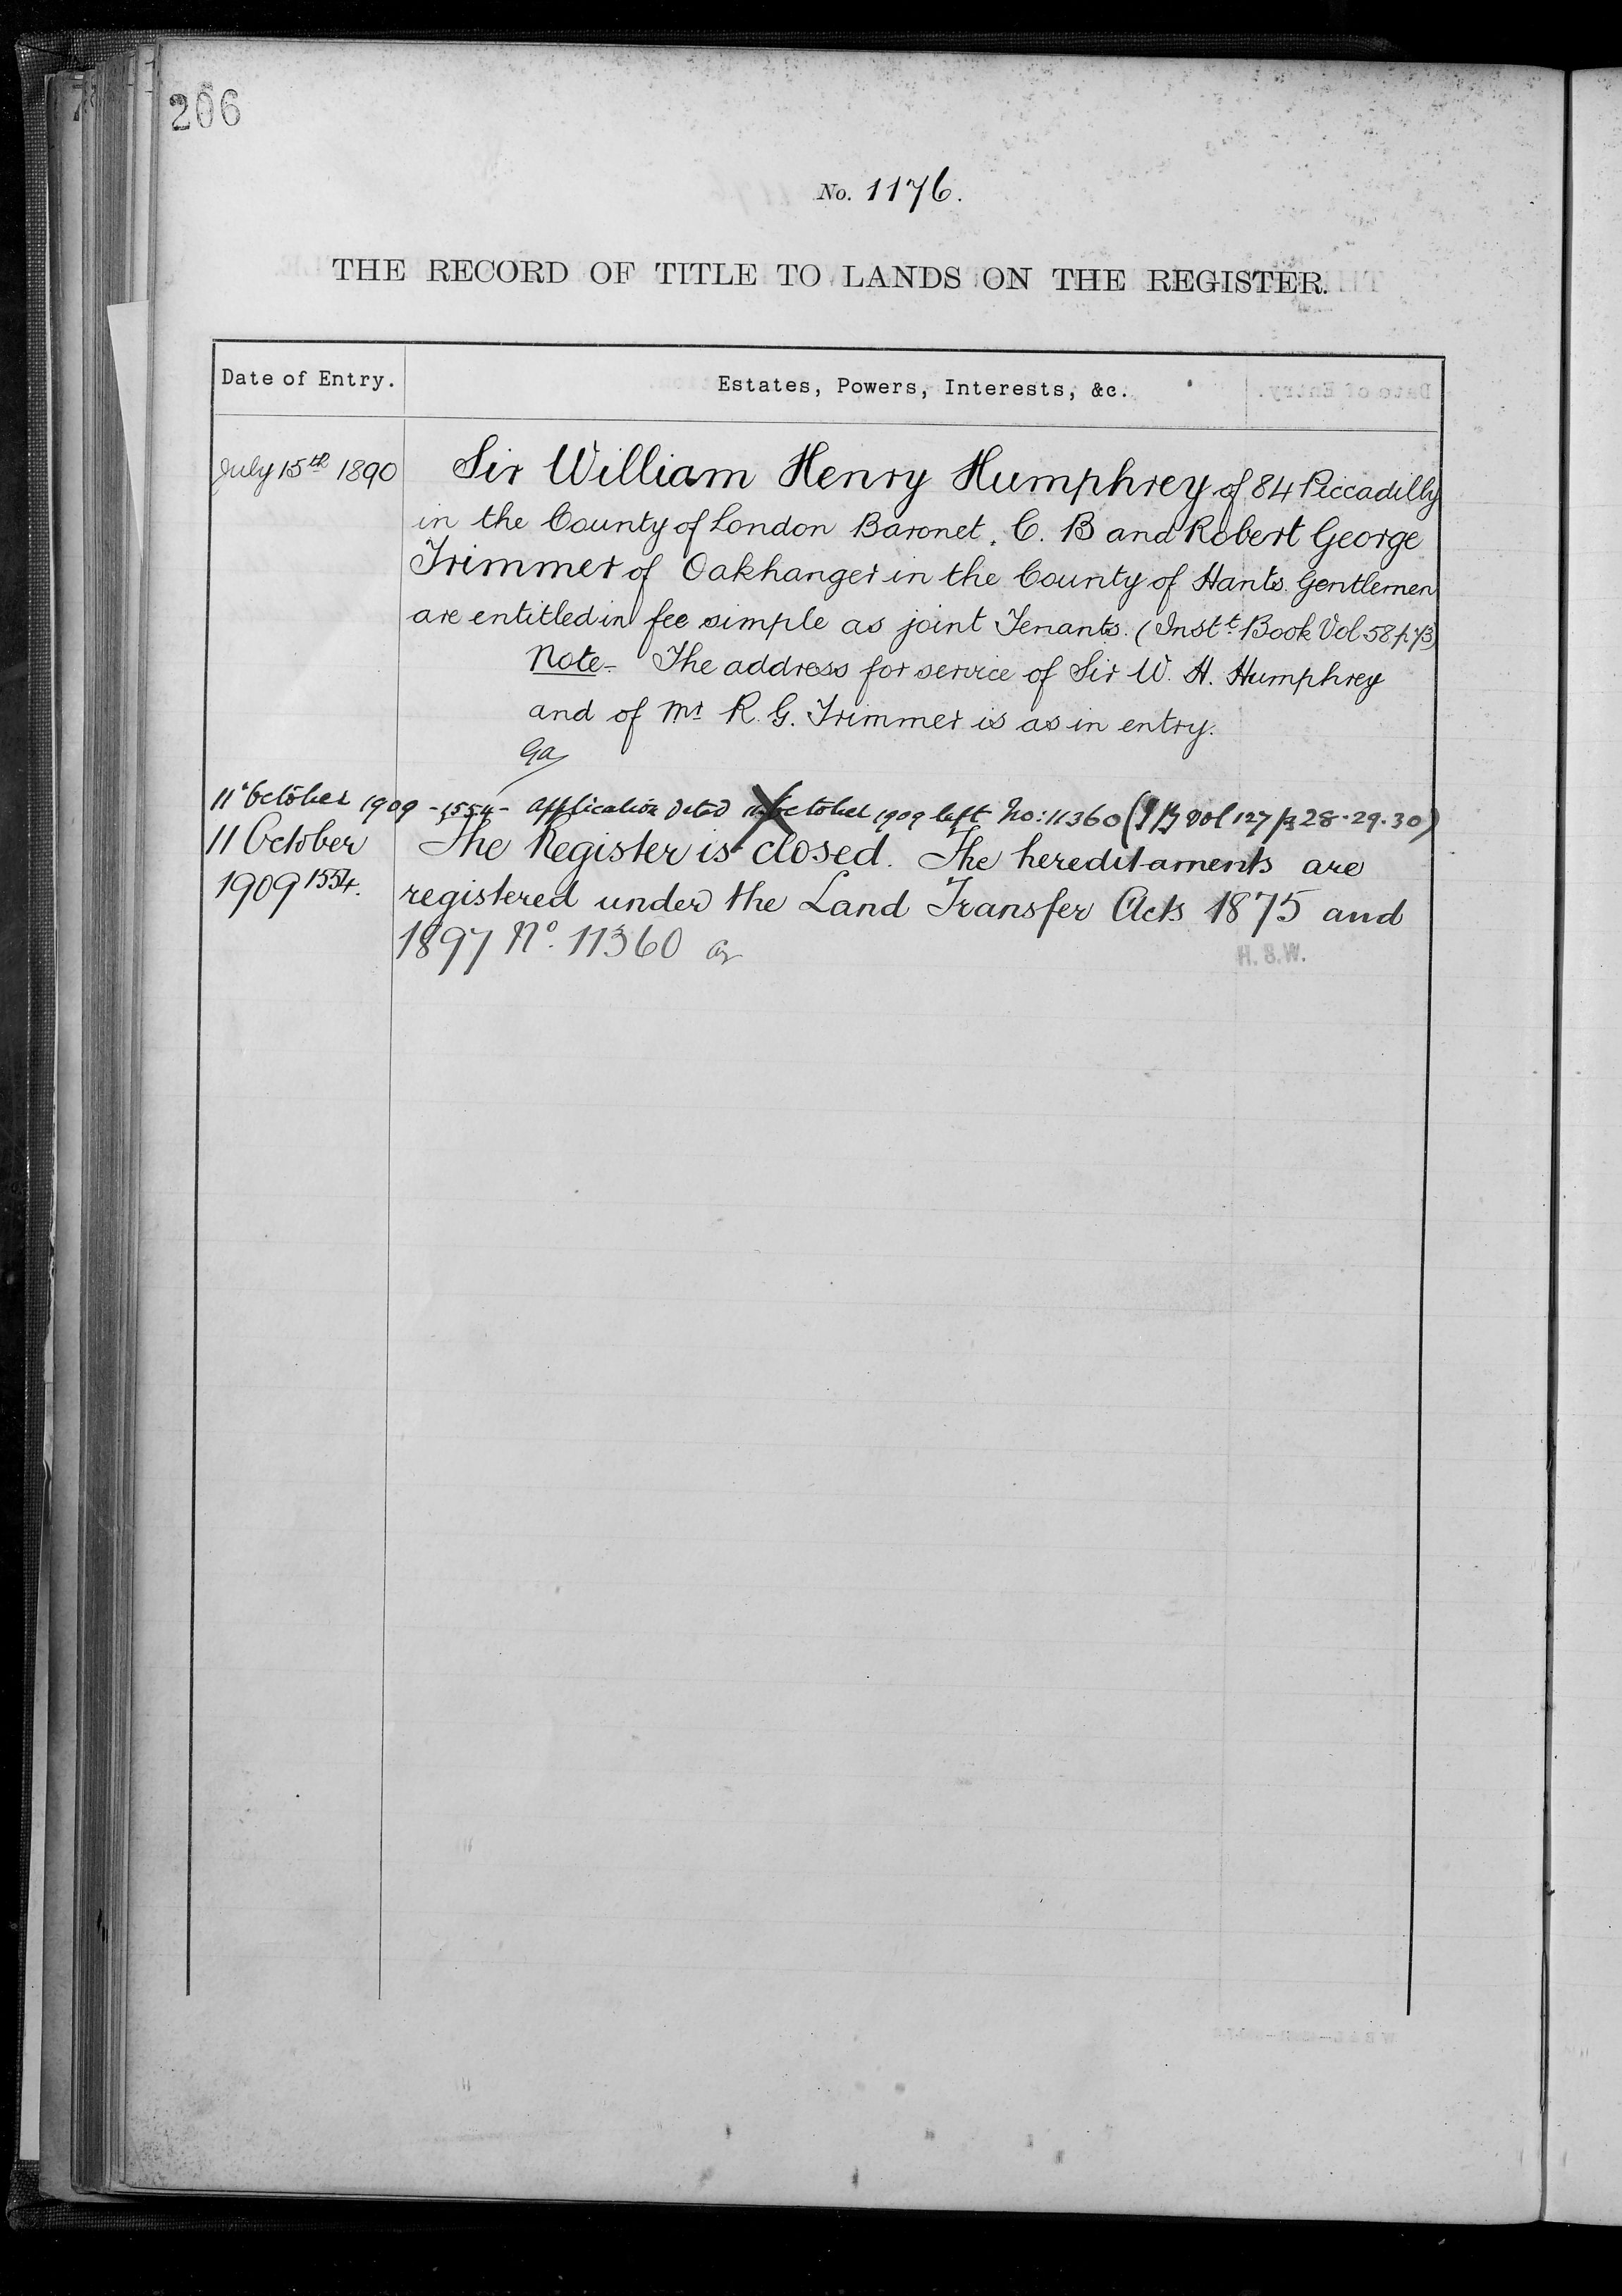 206
No. 1176.
THE RECORD OF TITLE TO LANDS ON THE REGISTER.
Date of Entry.
Estates, Powers, Interests, &c.
July 15th 1890
Sir William Henry Humphrey of 84 Piccadilly
in the County of London Baronet, C. B and Robert George
Trimmer of Oakhanger in the County of Hants. Gentlemen
are entitled in fee simple as joint Tenants. (Instt. Book Vol. 58 p.
Note - The address for service of Sir W. H. Humphrey
and of Mr R. G. Trimmer is as in entry.
11 October 1909 - 1554 - Application dated October 1909 left No: 11360 (I B Vol 127 p 28-29-30)
11 October
1909 1554.
The Register is closed. The hereditaments are
registered under the Land Transfer Acts 1875 and
1897 No. 11360
H. S. W.